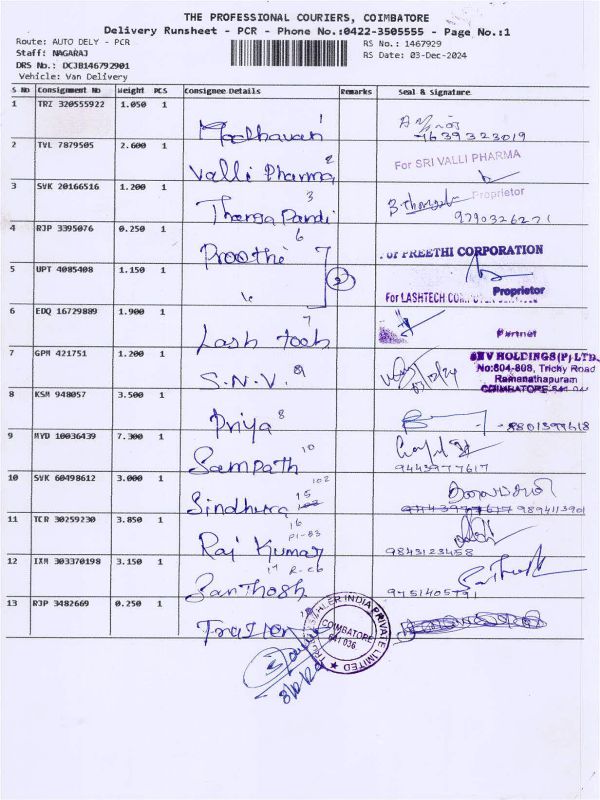 THE PROFESSIONAL COURIERS, COIMBATORE
Delivery Runsheet - PCR - Phone No.:0422-3505555 - Page No.:1
Route: AUTO DELY - PCR
RS No.: 1467929
Staff: NAGARAJ
RS Date: 03-Dec-2024
DRS No.: DCJB146792901
Vehicle: Van Delivery
S No Consignment No Weight PCS Consignee Details Remarks Seal & Signature
1 TRZ 320555922 1.050 1 Madhavan 1
9639323019
2 TVL 7879505 2.600 1 Valli Pharma 2 For SRI VALLI PHARMA
Proprietor
3 SVK 20166516 1.200 1 Thanga Pandi 3
9790326271
4 RJP 3395076 0.250 1 Preethi 6 For PREETHI CORPORATION
Proprietor
5 UPT 4085408 1.150 1 " 2 For LASHTECH
6 EDQ 16729889 1.900 1 Lash tech 7 Partner
7 GPM 421751 1.200 1 S.N.V. 9 SNV HOLDINGS (P) LTD.
No:804-808, Trichy Road
Ramanathapuram
03/12/24
8 KSM 948057 3.500 1 Priya 8
9 MYD 10036439 7.300 1 Sampath 10
9443977617
10 SVK 60498612 3.000 1 Sindhura 15 102
9894113901
11 TCR 30259230 3.850 1 Raj Kumar 16
9843123458
12 IXM 303370198 3.150 1 Santhosh 17
9751405791
13 RJP 3482669 0.250 1
INDIA PRIVATE LIMITED
COIMBATORE
641 036